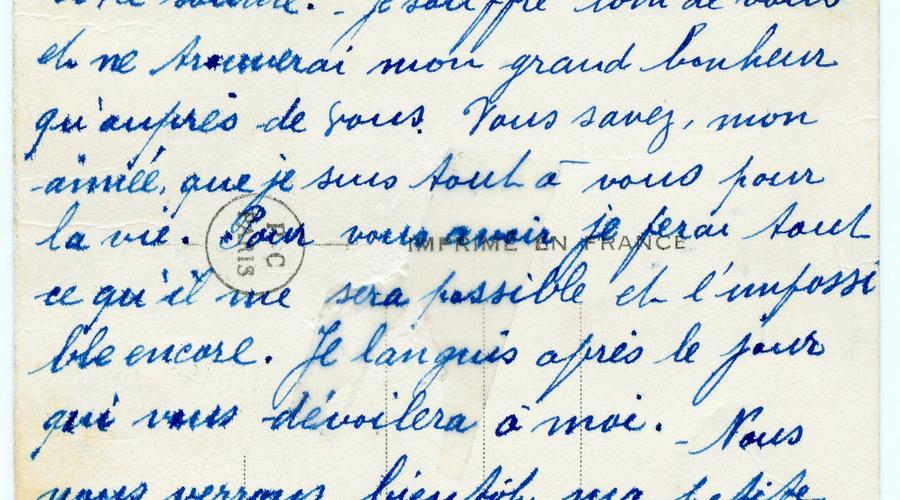 je souffre loin de vous
et ne trouverai mon grand bonheur
qu'auprès de vous. Vous savez, mon
aimée, que je suis tout à vous pour
la vie. Pour vous avoir je ferai tout
IMPRIMÉ EN FRANCE
ce qu'il me sera possible et l'impossi
ble encore. Je languis après le jour
qui vous dévoilera à moi. - Nous
nous verrons bientôt, ma petite